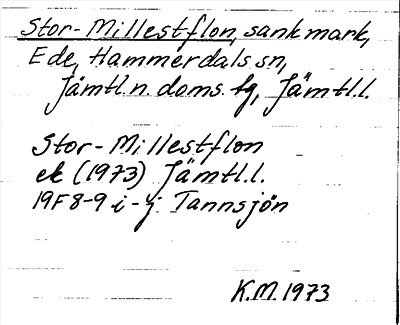 Stor-Millestflon, sankmark,
Ede, Hammerdals sn,
Jämtl. n. doms. fg, Jämtl.l.
Stor-Millestflon
ek (1973) Jämtl.l.
19F 8-9 i-j Tannsjön
K.M. 1973